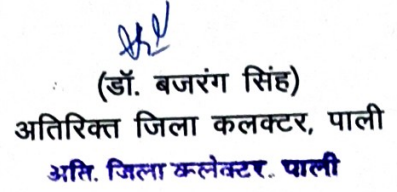 (डॉ. बजरंग सिंह)
अतिरिक्त जिला कलक्टर, पाली
अति. जिला कलेक्टर.. पाली